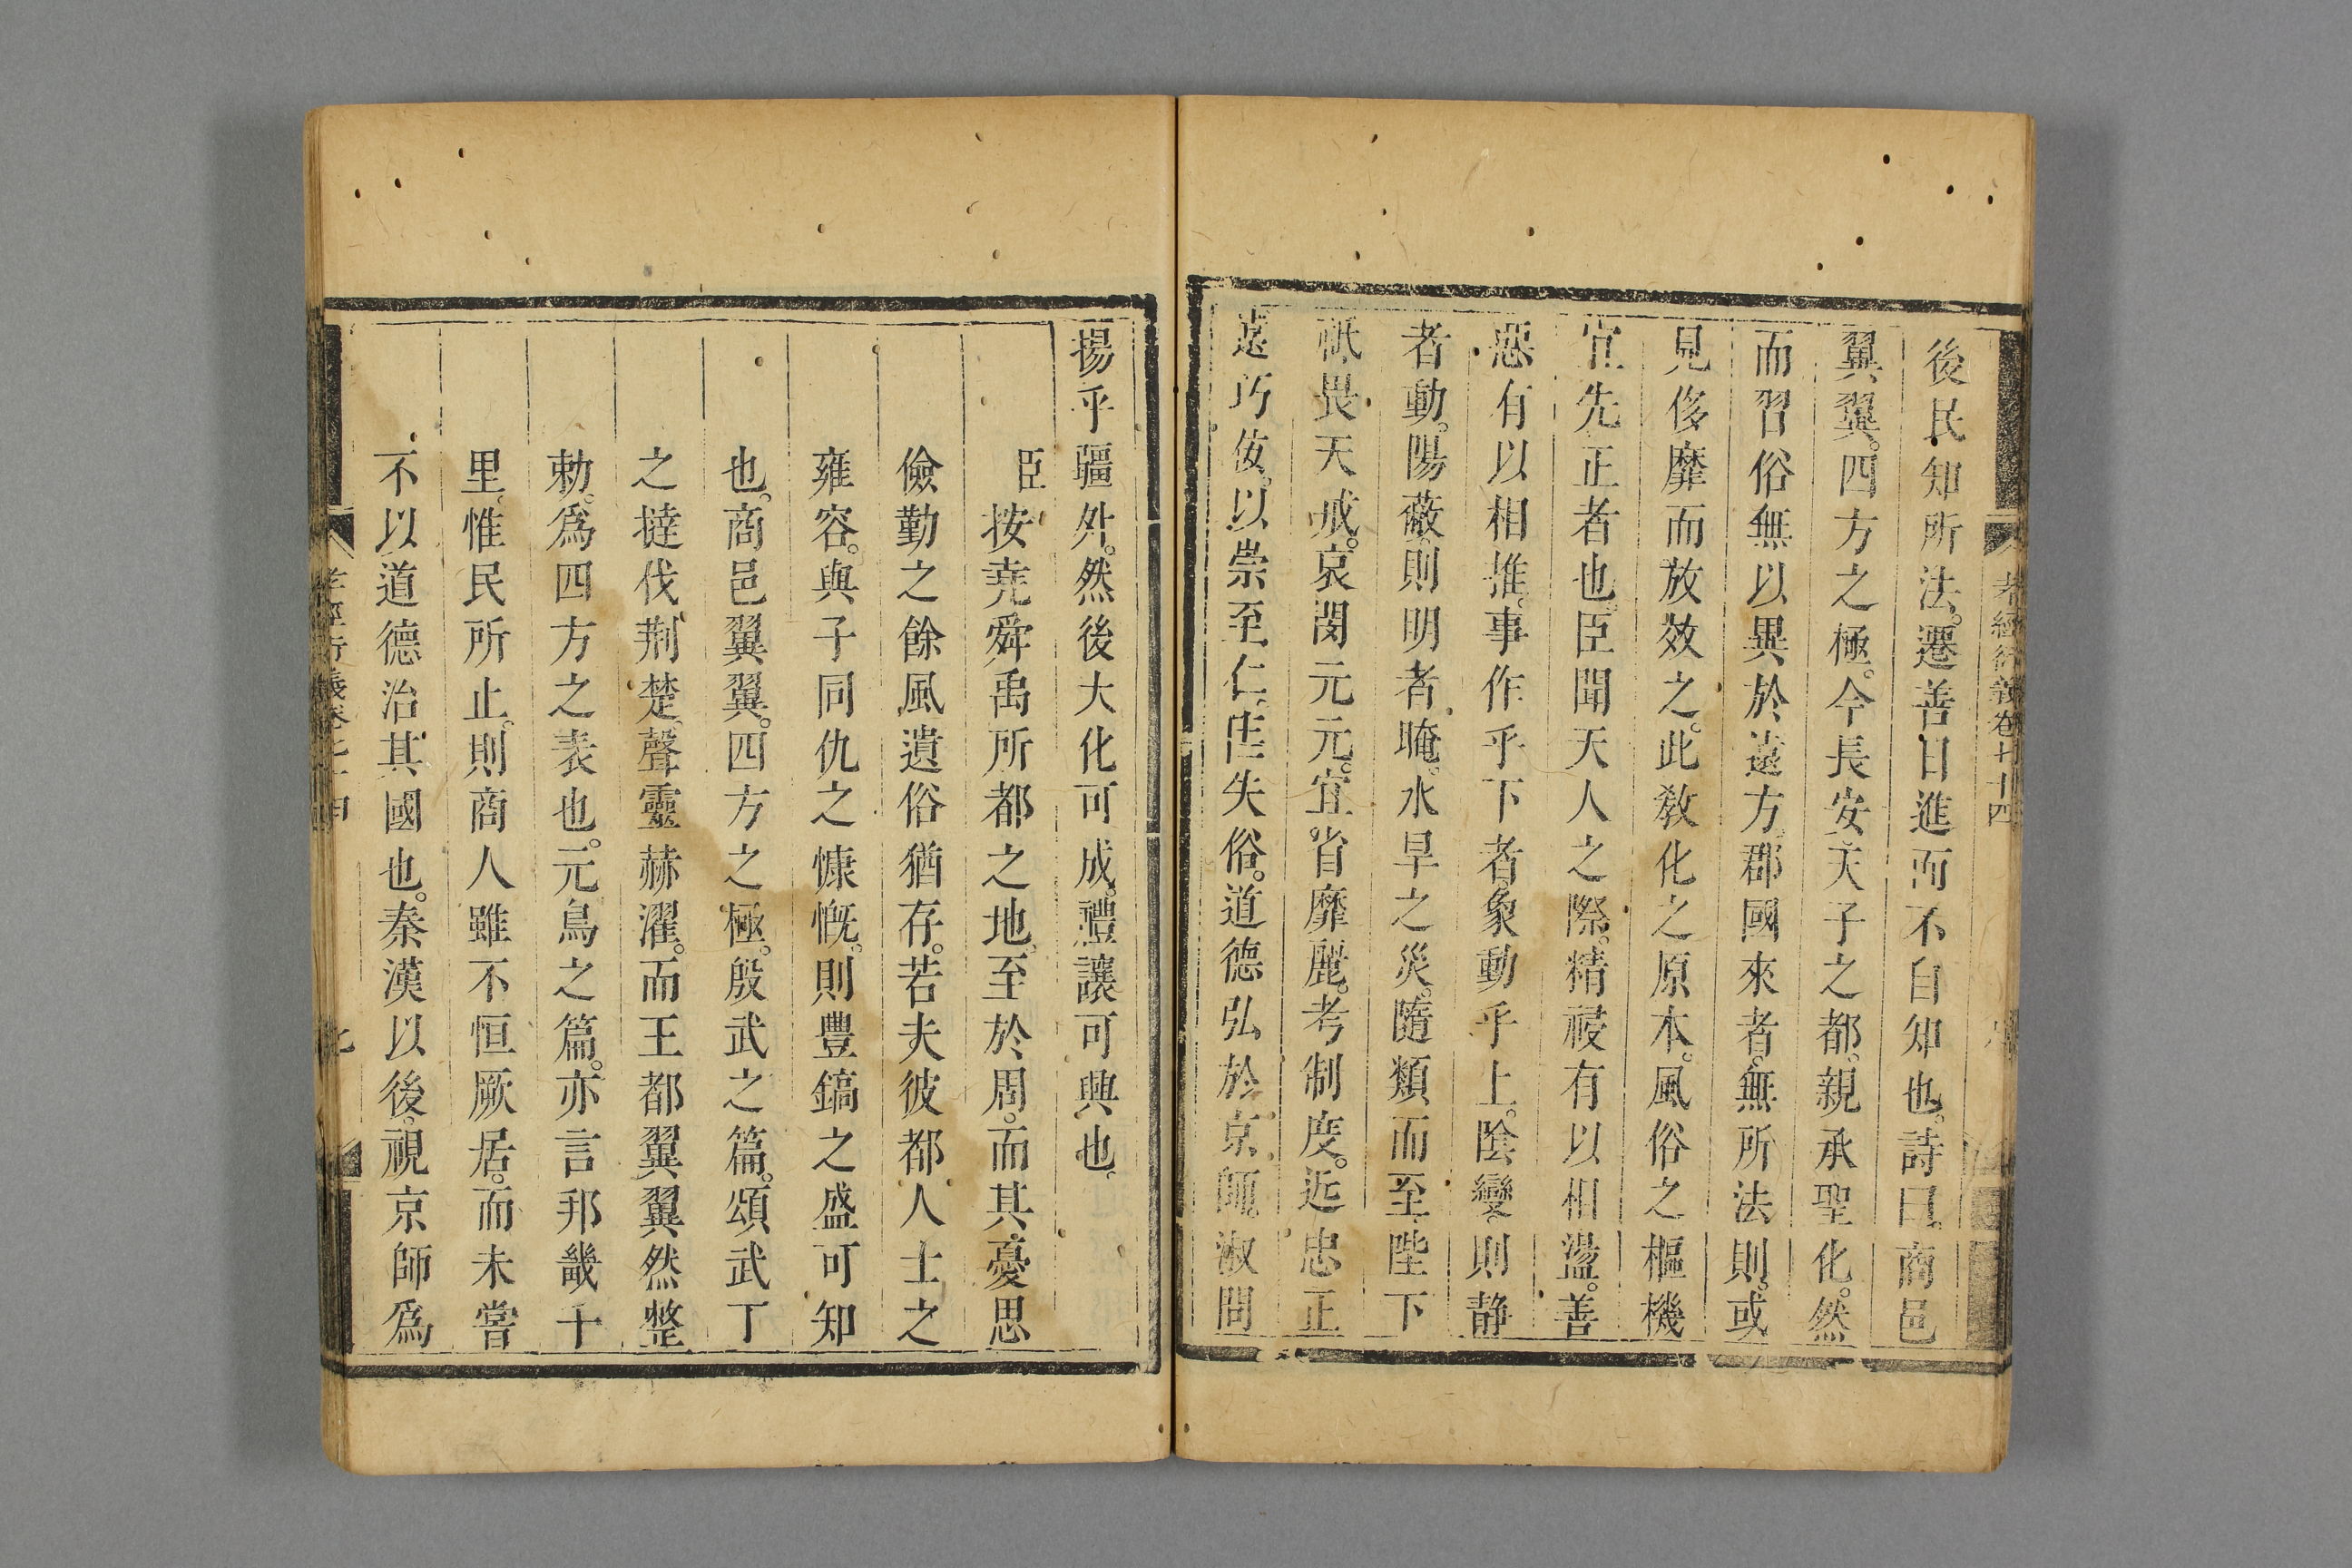 孝經衍義卷七十四
後民知所法。遷善日進而不自知也。詩曰。商邑
翼翼。四方之極。今長安天子之都。親承聖化。然
而習俗無以異於遠方。郡國來者。無所法則。或
見侈靡而放效之。此教化之原本。風俗之樞機
宜先正者也。臣聞天人之際。精祲有以相盪。善
惡有以相推。事作乎下者。象動乎上。陰變。則静
者動。陽蔽。則明者晻。水旱之災。隨類而至。陛下
祗畏天戒。哀閔元元。宜省靡麗。考制度。近忠正
遠巧佞。以崇至仁。匡失俗。道德弘於京師。淑問
揚乎疆外。然後大化可成。禮讓可興也。
臣按堯舜禹所都之地。至於周。而其憂思
儉勤之餘風遺俗猶存。若夫彼都人士之
雍容。與子同仇之慷慨。則豐鎬之盛可知
也。商邑翼翼。四方之極。殷武之篇。頌武丁
之撻伐荆楚。聲靈赫濯。而王都翼翼然整
勅。爲四方之表也。元鳥之篇。亦言邦畿千
里。惟民所止。則商人雖不恒厥居。而未嘗
不以道德治其國也。秦漢以後。視京師爲